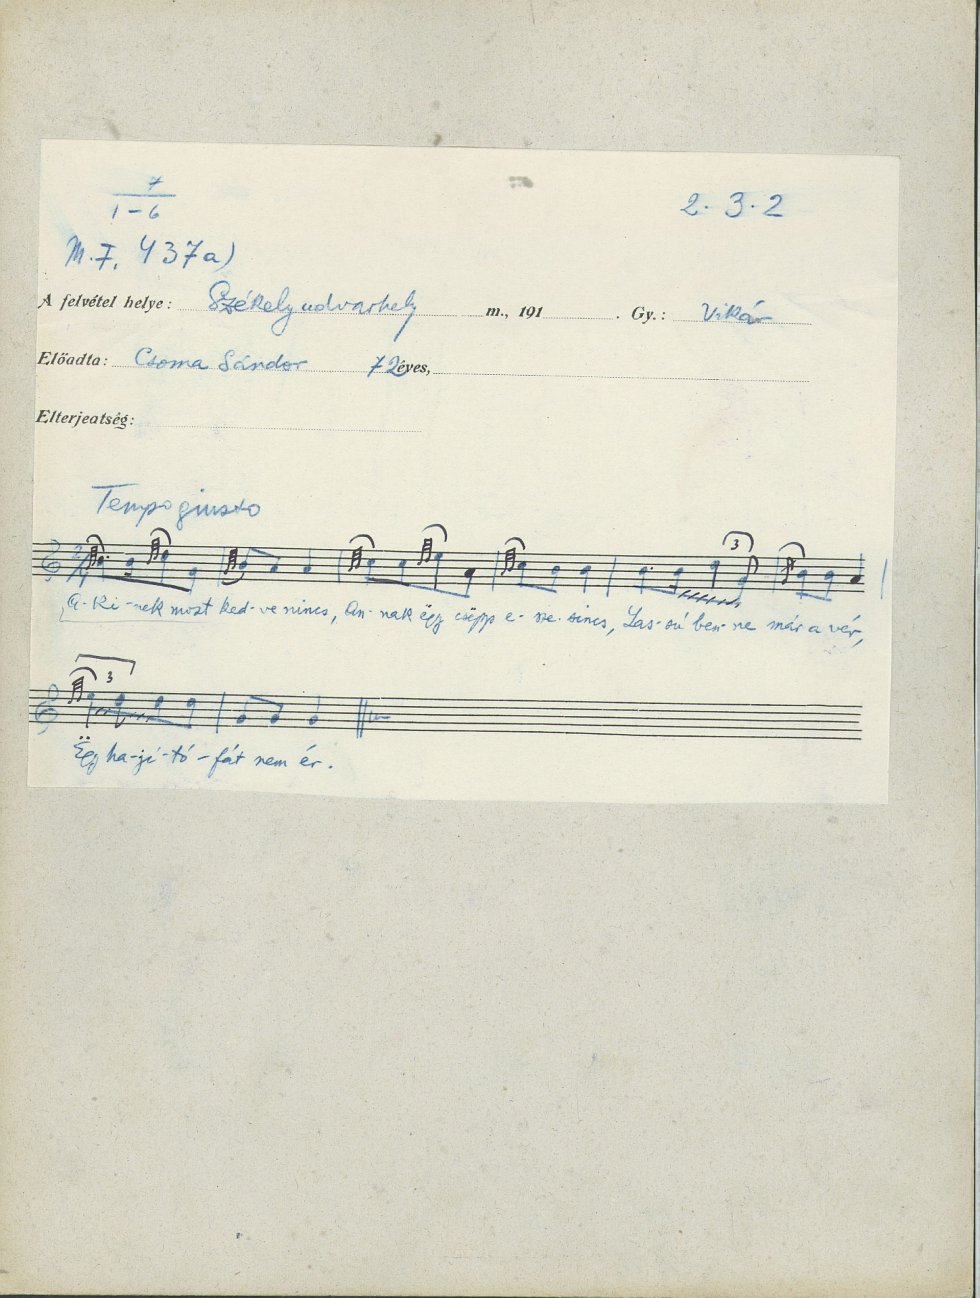 7
1-6
2. 3. 2
M.F. 437a)
A felvétel helye: Székelyudvarhely m., 191 . Gy.: Vikár
Előadta: Csoma Sándor 72 éves,
Elterjeatség:
Tempo giusto
2/4
3
A-ki-nek most ked-ve nincs, An-nak ëgy csëpp e-sze sincs, Las-sú ben-ne már a vér,
3
Ëgy ha-ji-tó-fát nem ér.